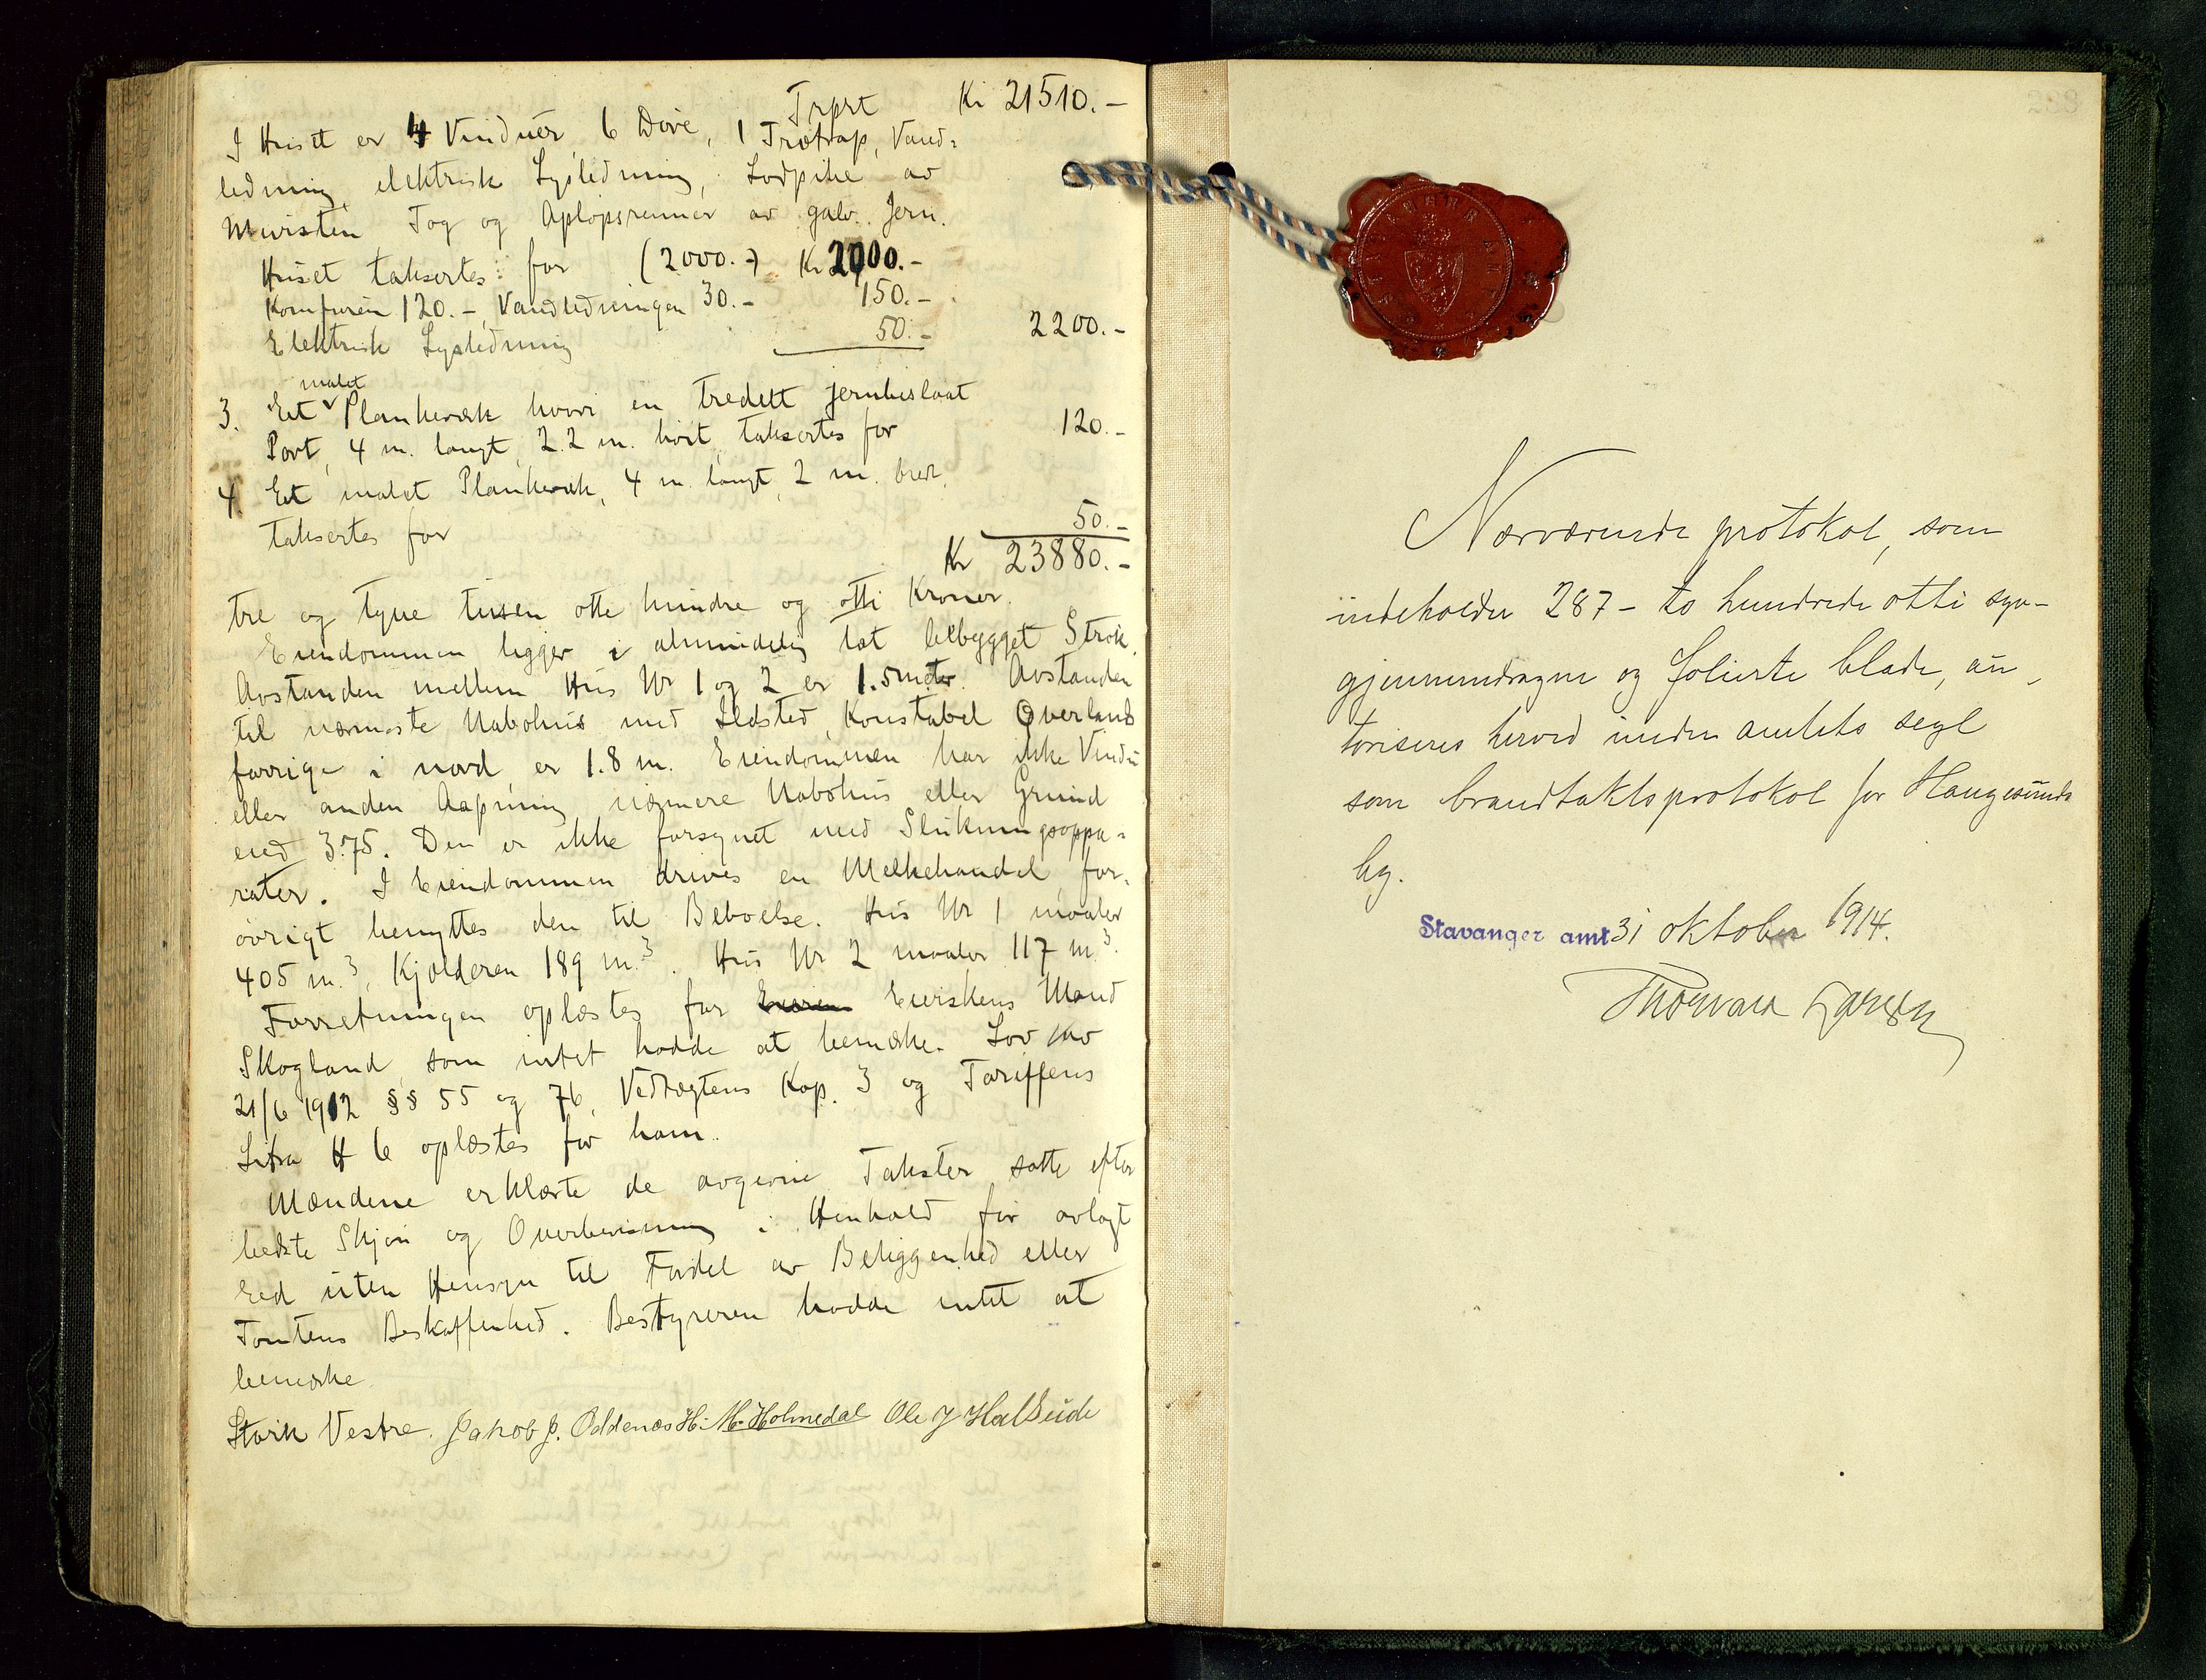 Trprt Kr 21510.-
I Huset er 4 Vinduer, 6 Døre, 1 Trætrap, Vand-
ledning, elektrisk Lysledning, Lodpibe av
Mursten Tag og Avløpsrenner av galv. Jern.
Huset takseres for (2000.-) Kr 2000.-
Komfuren 120.-, Vandledningen 30.- 150.-
Elektrisk Lysledning 50.- 2200.-
malet
3. Et Plankeværk hvori en tredelt jernbeslaat
Port, 4 m. langt, 2.2 m. høit, takseres for 120.-
4. Et malet Plankeværk, 4 m. langt, 2 m. bredt,
takseres for 50.-
Kr 23880.-
tre og tyve tusen otte hundre og otti Kroner.
Eiendommen ligger i almindelig tæt bebygget Strøk.
Avstanden mellem Hus Nr 1 og 2 er 1.5 meter. Avstanden
til nærmeste Nabohus med Ildsted, Konstabel Øverlands
forrige i nord er 1.8 m. Eiendommen har ikke Vindu
eller anden Aapning nærmere Nabohus eller Grund
end 3.75. Den er ikke forsynet med Slukningsappa-
rater. I Eiendommen drives en Melkehandel for-
øvrigt benyttes den til Beboelse. Hus Nr 1 maaler
405 m.³, Kjælderen 189 m.³. Hus Nr 2 maaler 117 m.³.
Forretningen oplæstes for Eierskens Mand
Skogland, som intet hadde at bemærke. Lov av
21/6 1912 §§ 55 og 76, Vedtægtens Kap. 3 og Tariffens
Litra H 6 oplæstes for ham.
Mændene erklærte de avgivne Takster satte efter
bedste Skjøn og Overbevisning i Henhold før avlagt
Eed uten Hensyn til Fordel av Beliggenhed eller
Tomtens Beskaffenhed. Bestyreren hadde intet at
bemærke.
Stark Vestre. Jakob J. Oddenæs H. M. Holmedal Ole J Halseide
Nærværende protokol, som
indeholder 287 - to hundrede otti syv -
gjennemdragne og folierte blade, au-
toriseres herved under amtets segl
som brandtakstprotokol for Haugesunds
by.
Stavanger amt 31 oktober 1914.
Thorvald Larsen